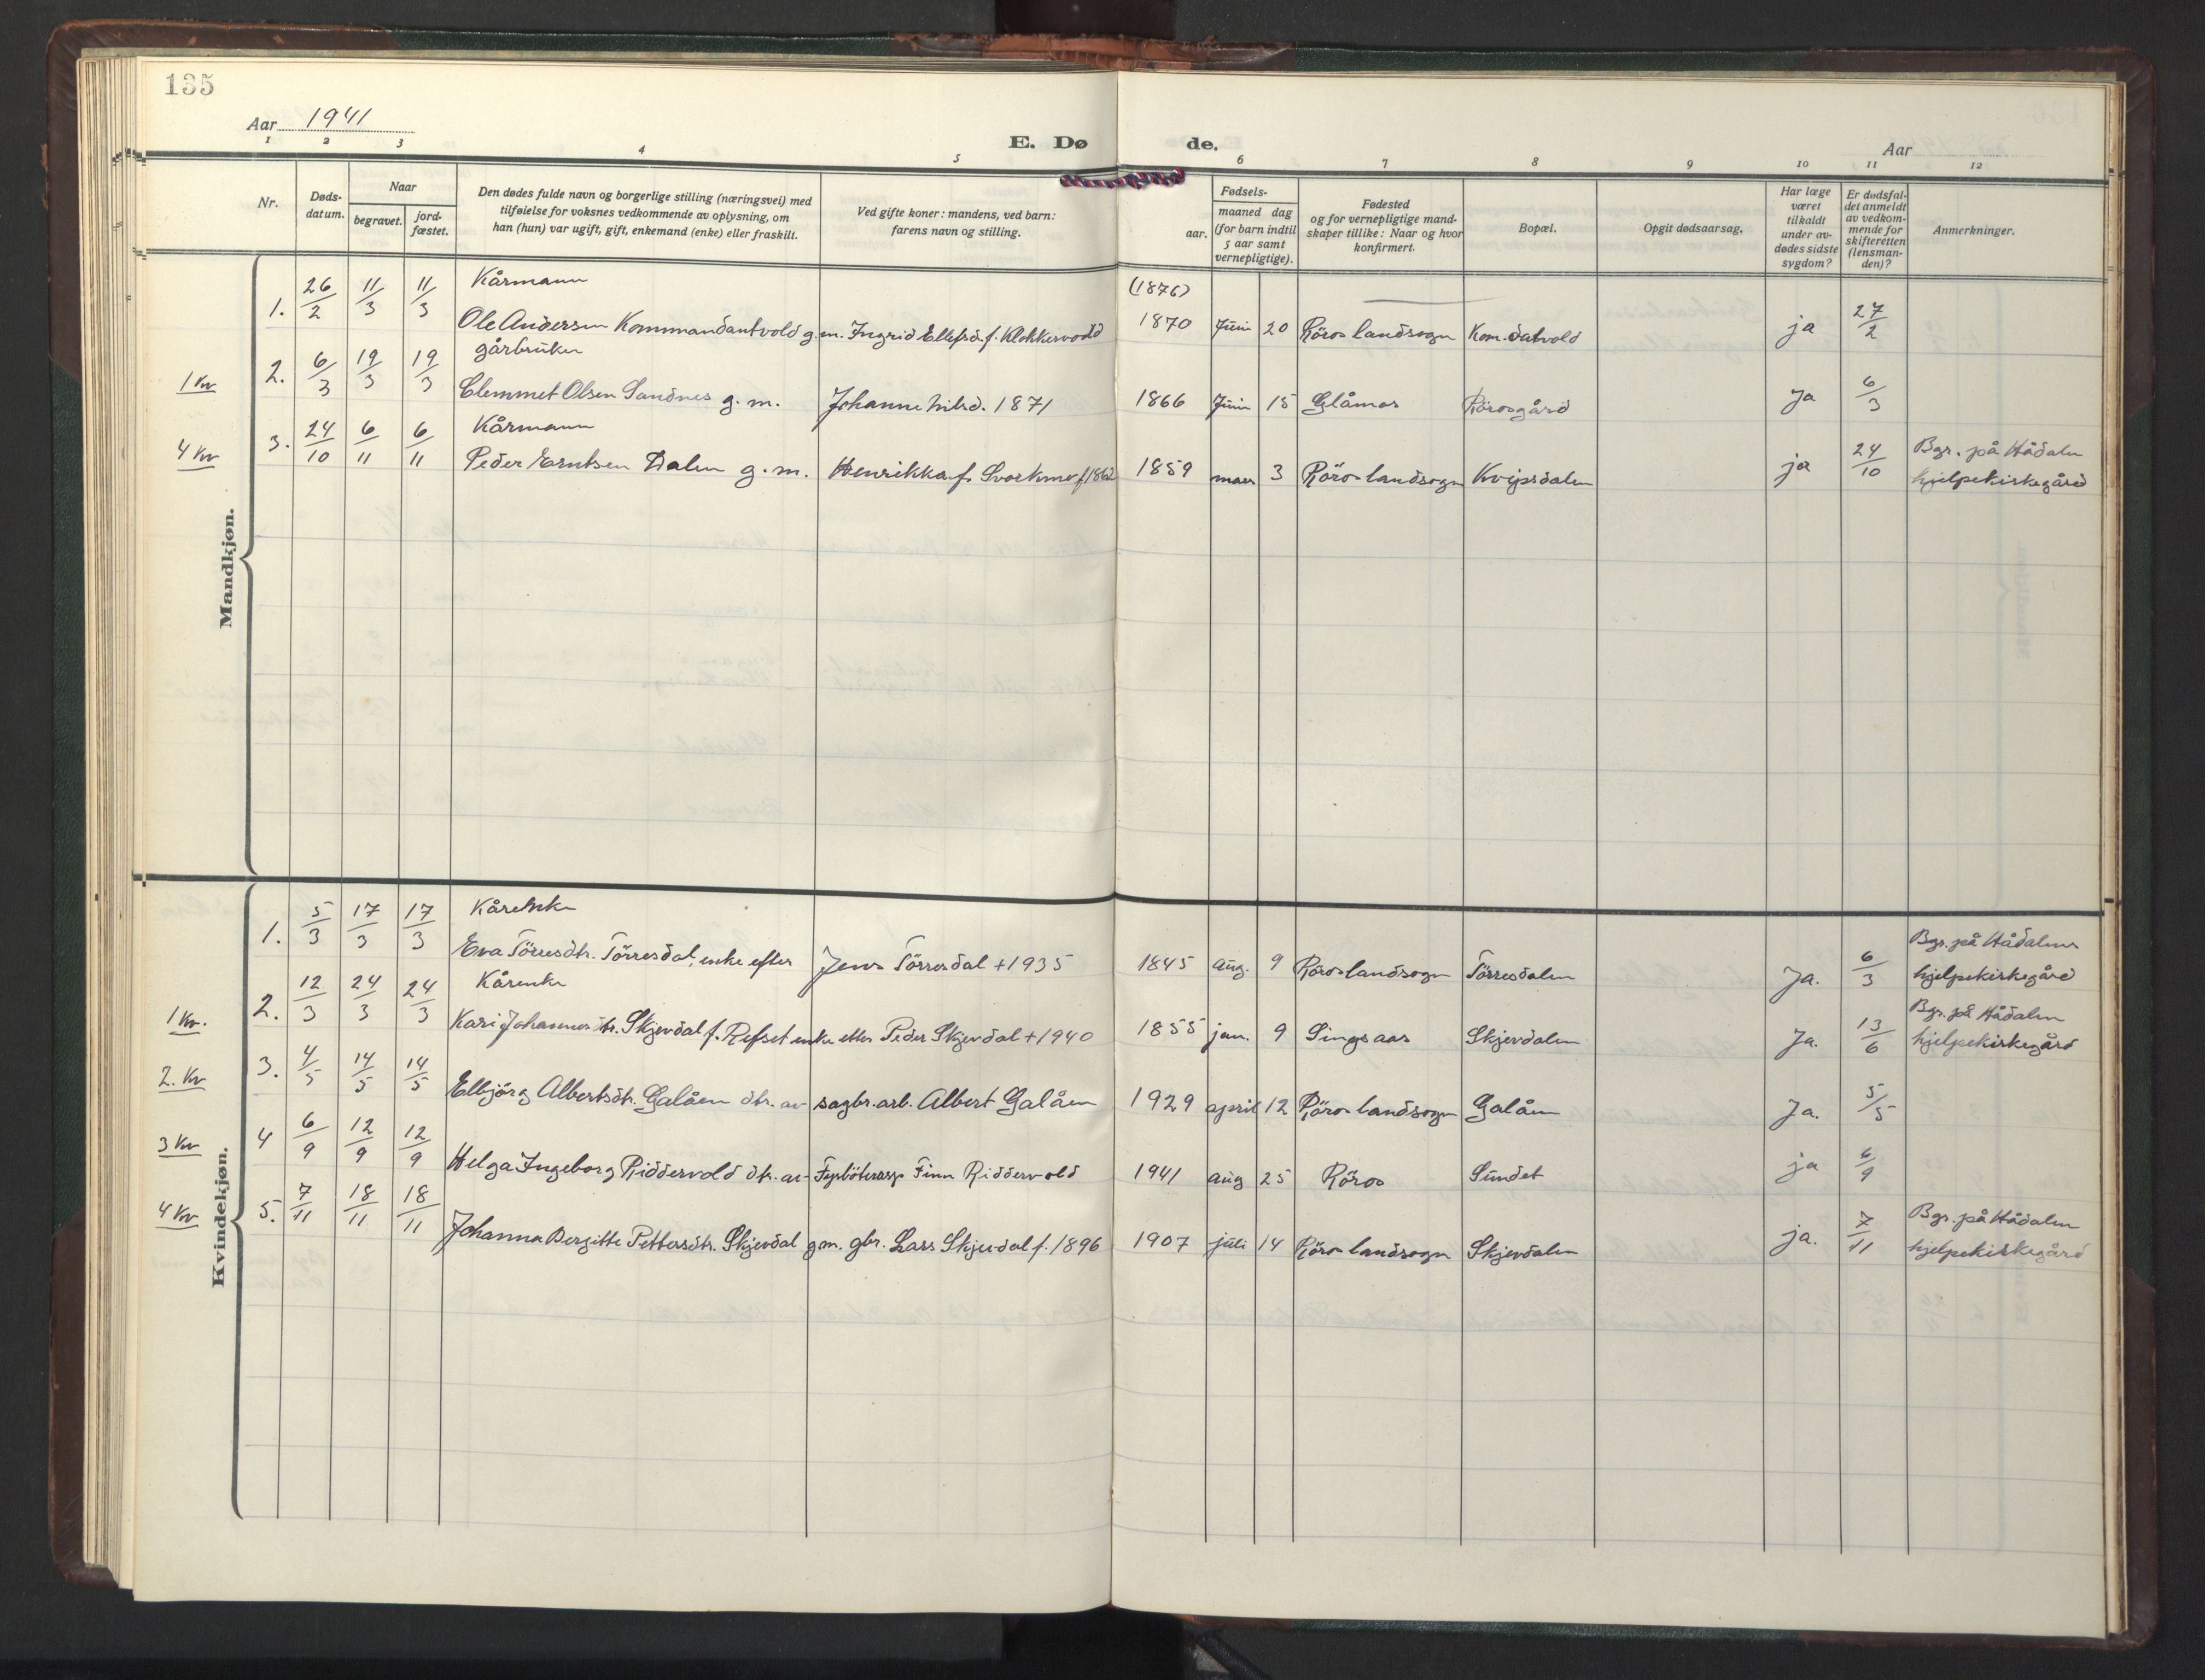 135
Aar 1941
E. Døde.
Aar
1 2 3 4 5 6 7 8 9 10 11 12
Nr.
Døds-datum.
Naar
begravet.
jord-fæstet.
Den dødes fulde navn og borgerlige stilling (næringsvei) med
tilføielse for voksnes vedkommende av oplysning, om
han (hun) var ugift, gift, enkemand (enke) eller fraskilt.
Ved gifte koner: mandens, ved barn:
farens navn og stilling.
Fødsels-
aar.
maaned dag
(for barn indtil
5 aar samt
vernepligtige).
Fødested
og for vernepligtige mand-
skaper tillike: Naar og hvor
konfirmert.
Bopæl.
Opgit dødsaarsag.
Har læge
været
tilkaldt
under av-
dødes sidste
sygdom?
Er dødsfal-
det anmeldt
av vedkom-
mende for
skifteretten
(lensman-
den)?
Anmerkninger.
Mandkjøn.
Kårmann (1876)
1. 26/2 11/3 11/3 Ole Andersen Kommandantvold g.m. Ingrid Ellefsd. f. Klokkervold 1870 Juni 20 Röros landsogn Kom.datvold ja 27/2
gårbruker
1 Kv 2. 6/3 19/3 19/3 Clemmet Olsen Sandnes g. m. Johanne Nilsd. 1871 1866 Juni 15 Glåmos Rörosgård Ja 6/3
Kårmann Bgr. på Hådalen
4 Kv 3. 24/10 6/11 6/11 Peder Erntsen Dalen g. m. Henrikka f. Svorkmo f 1862 1859 mars 3 Röros landsogn Kvipsdalen ja 24/10 hjelpekirkegård
Kvindekjøn.
Kårenke Bgr. på Hådalens
1. 5/3 17/3 17/3 Eva Törresdtr. Törresdal, enke efter Jens Törresdal +1935 1845 aug. 9 Röros landsogn Törresdalen Ja. 6/3 hjelpekirkegård
Kårenke Bgr. på Hådalen
1 Kv. 2. 12/3 24/3 24/3 Kari Johannesdtr. Skjevdal f. Refset enke etter Peder Skjevdal +1940 1855 jan. 9 Singsaas Skjevdalen Ja. 13/6 hjelpekirkegård
2. Kv 3. 4/5 14/5 14/5 Elbjörg Albertsdtr. Galåen dtr. av sagbr.arb. Albert Galåen 1929 april 12 Röros landsogn Galåen Ja. 5/5
3 Kv 4 6/9 12/9 12/9 Helga Ingeborg Riddervold dtr. av Finn Riddervold 1941 aug 25 Röros Sundet ja 6/9
Bgr. på Hådalen
4 Kv 5. 7/11 18/11 18/11 Johanna Bergitte Pettersdtr. Skjevdal g.m. gbr. Lars Skjevdal f. 1896 1907 juli 14 Röros landsogn Skjevdalen ja. 7/11 hjelpekirkegård